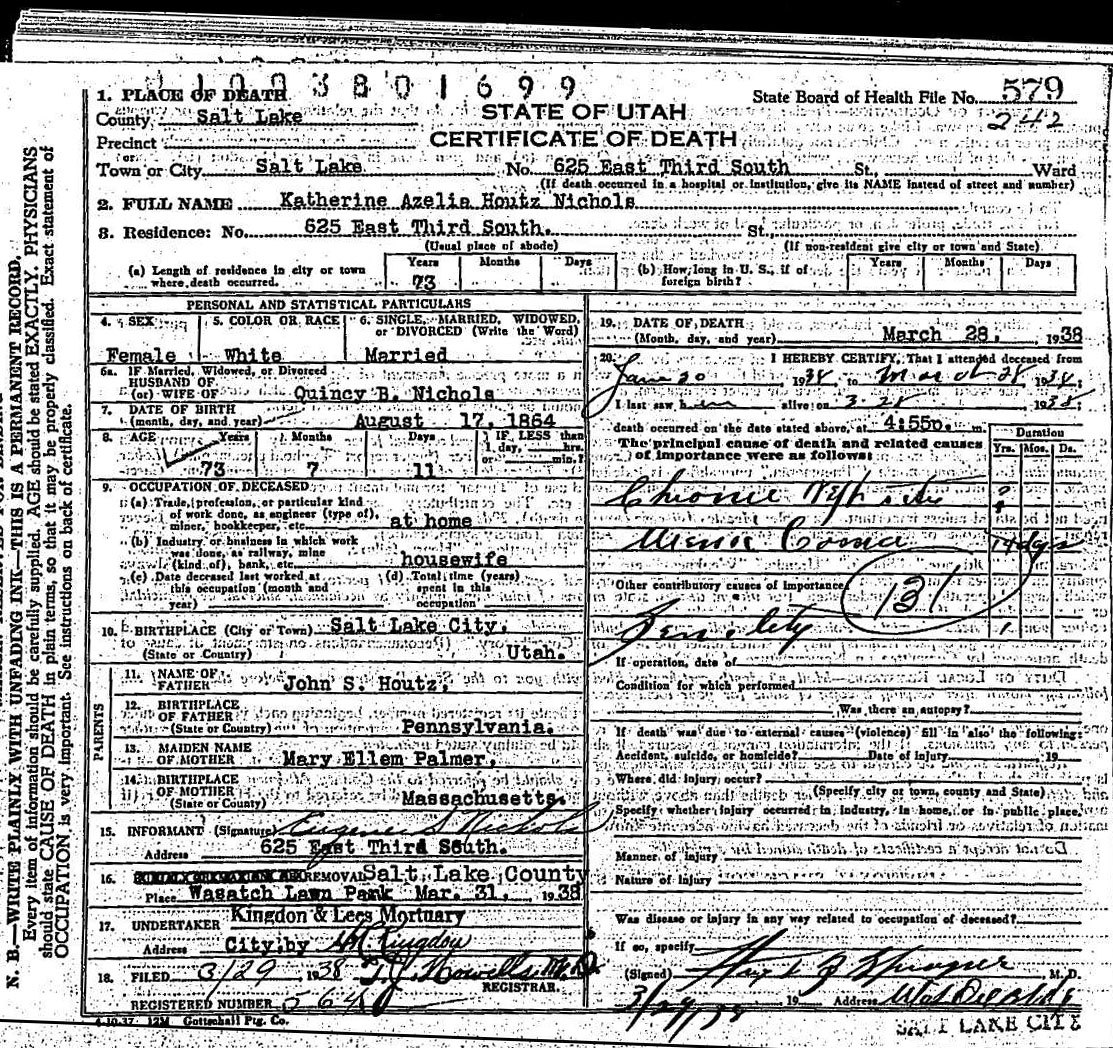 2100380 1699
State Board of Health File No. 579
242
1. PLACE OF DEATH
County Salt Lake
STATE OF UTAH
CERTIFICATE OF DEATH
Precinct
or
Town or City Salt Lake No. 625 East Third South St., Ward
(If death occurred in a hospital or institution, give its NAME instead of street and number)
2. FULL NAME Katherine Azelia Houtz Nichols
3. Residence: No. 625 East Third South. St.,
(Usual place of abode) (If non-resident give city or town and State)
(a) Length of residence in city or town where death occurred. Years 73 Months Days
(b) How long in U. S., if of foreign birth? Years Months Days
PERSONAL AND STATISTICAL PARTICULARS
4. SEX Female
5. COLOR OR RACE White
6. SINGLE, MARRIED, WIDOWED, or DIVORCED (Write the Word) Married
6a. IF Married, Widowed, or Divorced
HUSBAND OF
(or) WIFE OF Quincy B. Nichols
7. DATE OF BIRTH
(month, day, and year) August 17, 1864
8. AGE Years 73 Months 7 Days 11 IF LESS than 1 day, hrs. or min.?
9. OCCUPATION OF DECEASED
(a) Trade, profession, or particular kind
of work done, as engineer (type of),
miner, bookkeeper, etc. at home
(b) Industry or business in which work
was done, as railway, mine
(kind of), bank, etc. housewife
(c) Date deceased last worked at this occupation (month and year)
(d) Total time (years) spent in this occupation
10. BIRTHPLACE (City or Town) Salt Lake City,
(State or Country) Utah.
PARENTS
11. NAME OF FATHER John S. Houtz,
12. BIRTHPLACE OF FATHER
(State or Country) Pennsylvania.
13. MAIDEN NAME OF MOTHER Mary Ellem Palmer,
14. BIRTHPLACE OF MOTHER
(State or Country) Massachusetts.
15. INFORMANT (Signature) Eugene S Nichols
Address 625 East Third South.
16. REMOVAL Salt Lake County
Place Wasatch Lawn Park Mar. 31, 1938
17. UNDERTAKER Kingdon & Lees Mortuary
Address City by Kingdon
18. FILED 3/29 1938 T. J. Howells M.D.
REGISTRAR.
REGISTERED NUMBER
4-10-37 12M Gottschall Ptg. Co.
19. DATE OF DEATH
(Month, day, and year) March 28, 1938
20. I HEREBY CERTIFY, That I attended deceased from
June 20 1938, to March 28 1938;
I last saw her alive on 3-28 1938;
death occurred on the date stated above, at 4:55p. m.
The principal cause of death and related causes of importance were as follows:
Duration
Yrs. Mos. Ds.
Chronic Nephritis ?
Uremic Coma 14 dys
Other contributory causes of importance:
131
Senility 1
If operation, date of
Condition for which performed
Was there an autopsy?
If death was due to external causes (violence) fill in also the following:
Accident, suicide, or homicide? Date of injury 19
Where did injury occur?
(Specify city or town, county and State)
Specify whether injury occurred in industry, in home, or in public place.
Manner of injury
Nature of injury
Was disease or injury in any way related to occupation of deceased?
If so, specify
(Signed) M. D.
3/29/38 19 Address
SALT LAKE CITY
N. B.—WRITE PLAINLY WITH UNFADING INK—THIS IS A PERMANENT RECORD.
Every item of information should be carefully supplied. AGE should be stated EXACTLY. PHYSICIANS
should state CAUSE OF DEATH in plain terms, so that it may be properly classified. Exact statement of
OCCUPATION is very important. See instructions on back of certificate.